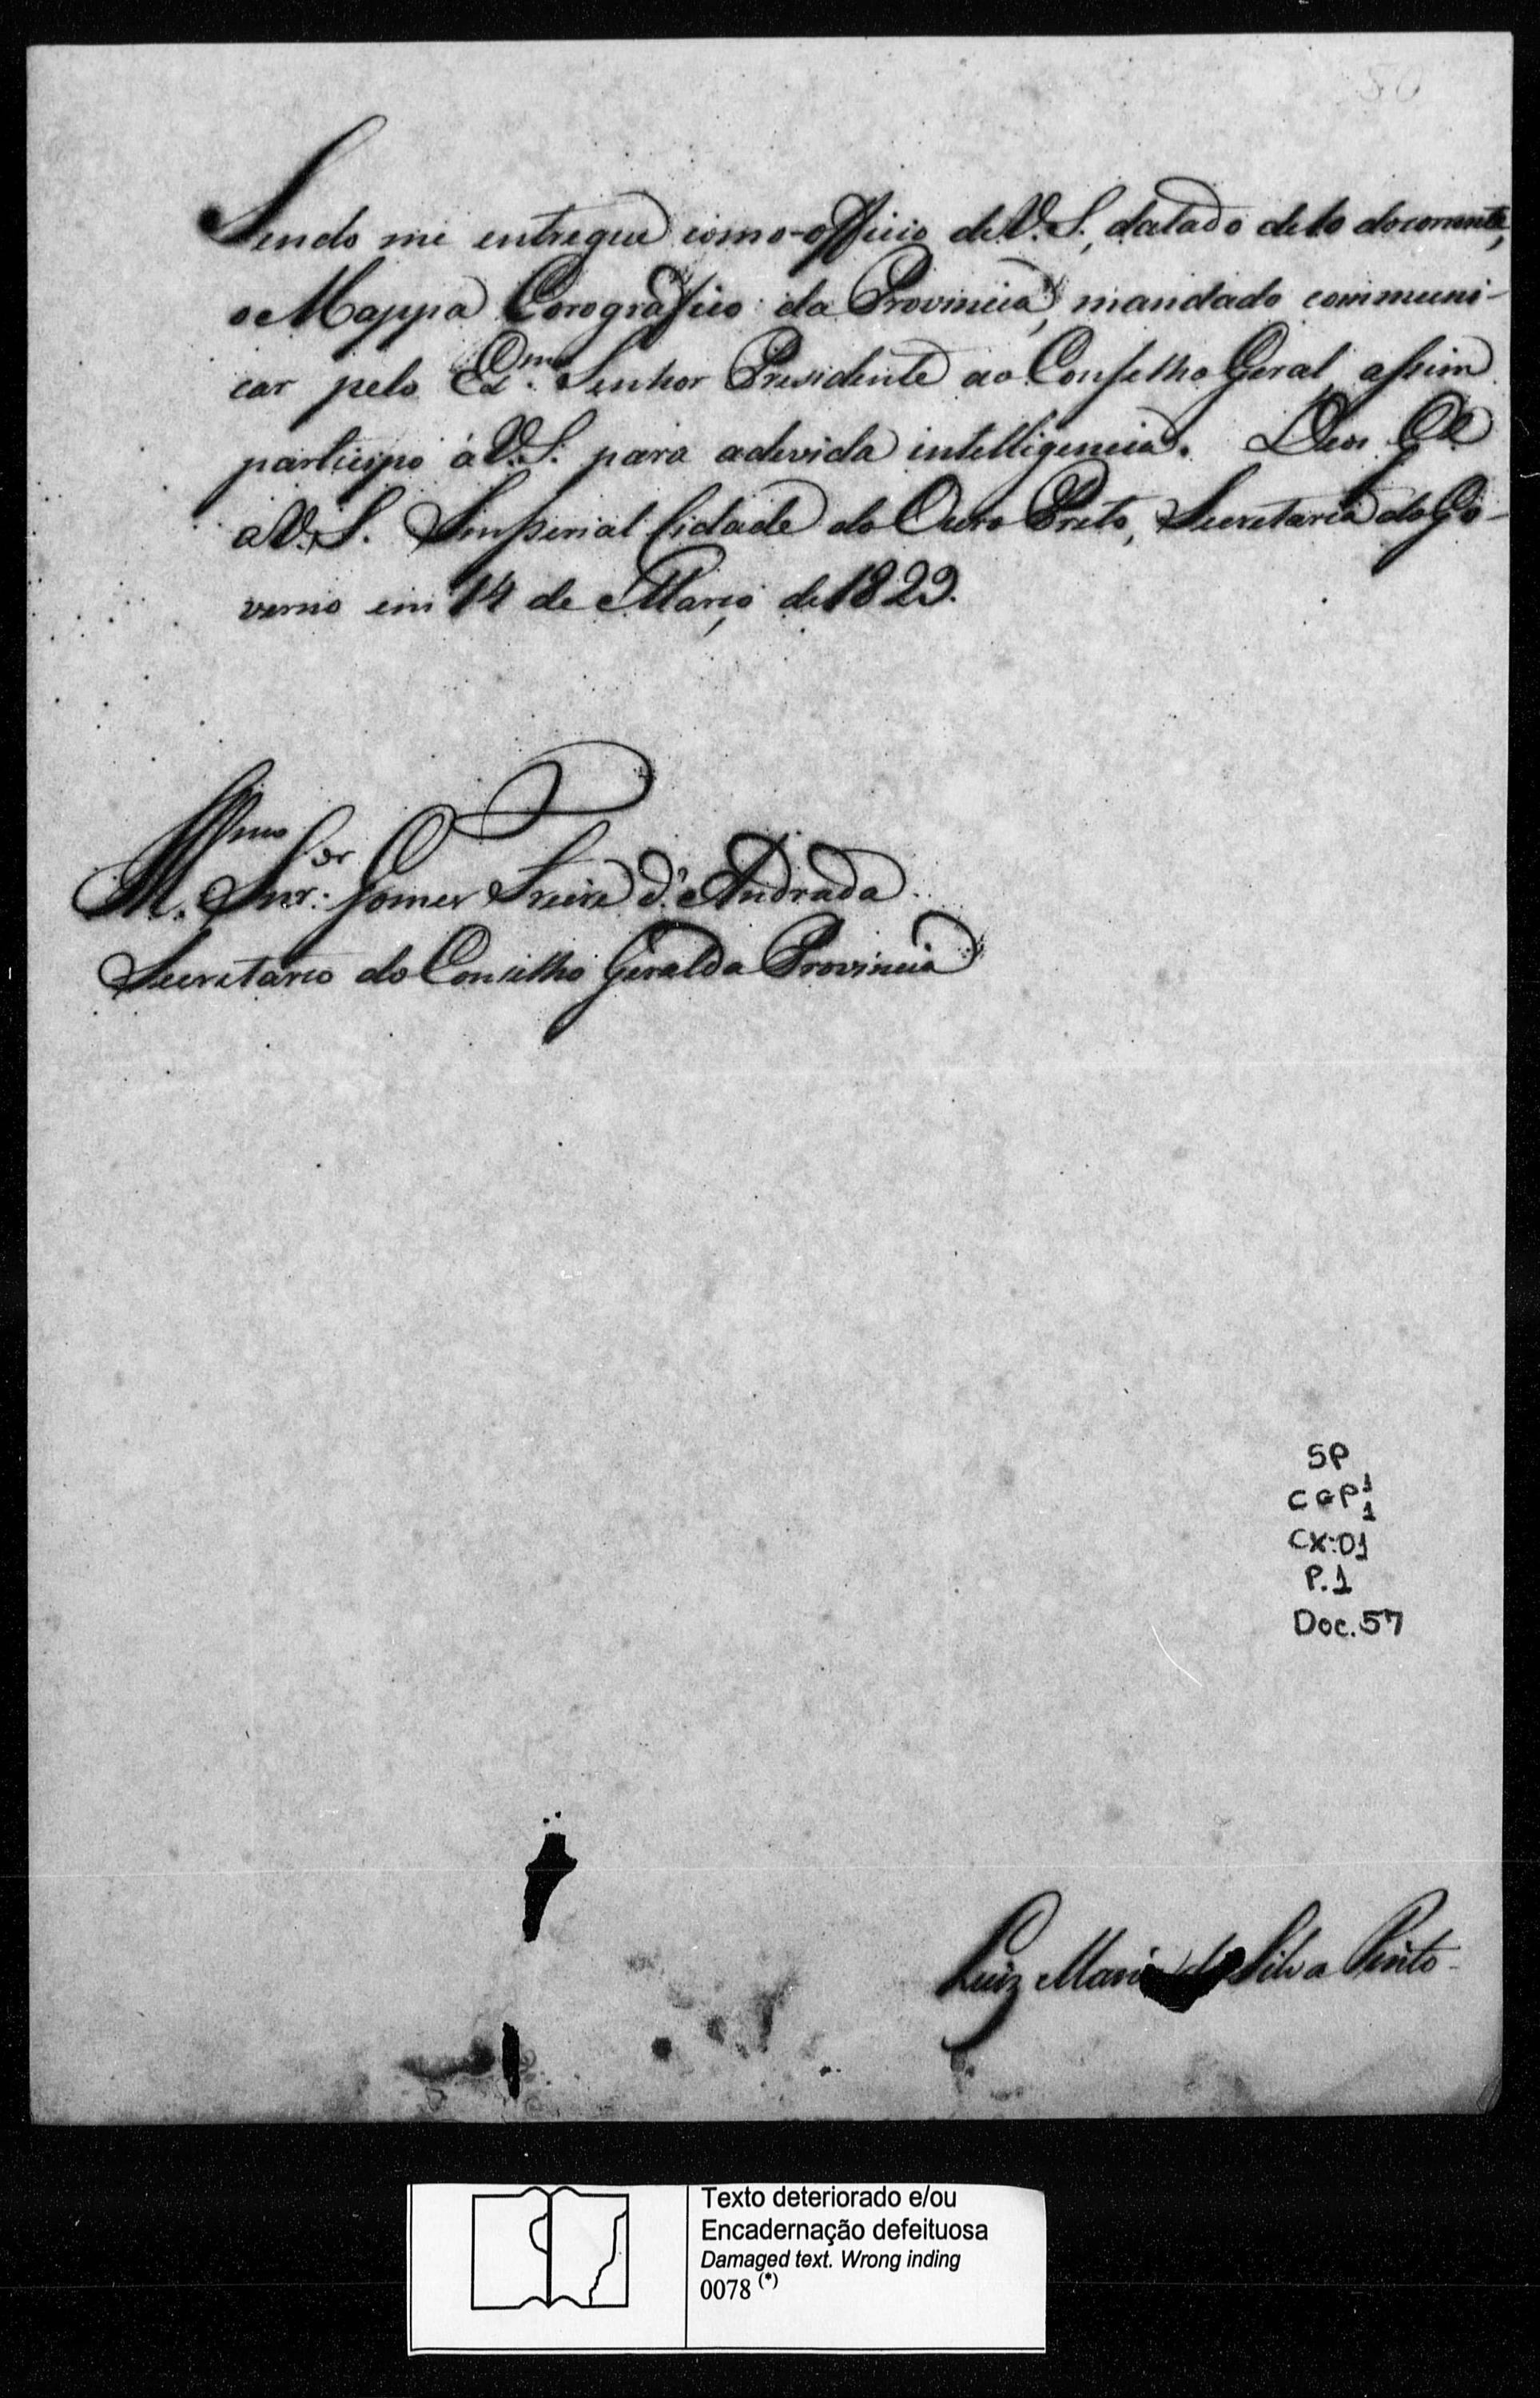 50
Sendo me entregue com o officio de V. S., datado de 10 do corrente,
o Mappa Corografico da Provincia, mandado communi-
car pelo Ex.mo Senhor Presidente ao Conselho Geral, assim
participo á V. S. para a devida intelligencia. Deos G.e
a V. S. Imperial Cidade do Ouro Preto, Secretaria do Go-
verno em 14 de Março de 1829.
Illmo
Snr. Gomes Freire d'Andrada
Secretario do Conselho Geral da Provincia
SP
CGP 1
1
CX: 01
P. 1
Doc. 57
Luiz Maria da Silva Pinto
Texto deteriorado e/ou
Encadernação defeituosa
Damaged text. Wrong inding
0078 (*)